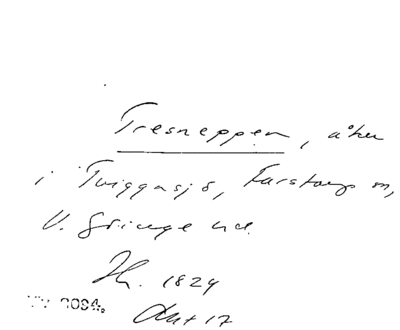 Tresneppen, åker
i Tviggasjö, Farstorp sn,
V. Göinge hd.
1829
Akt 17